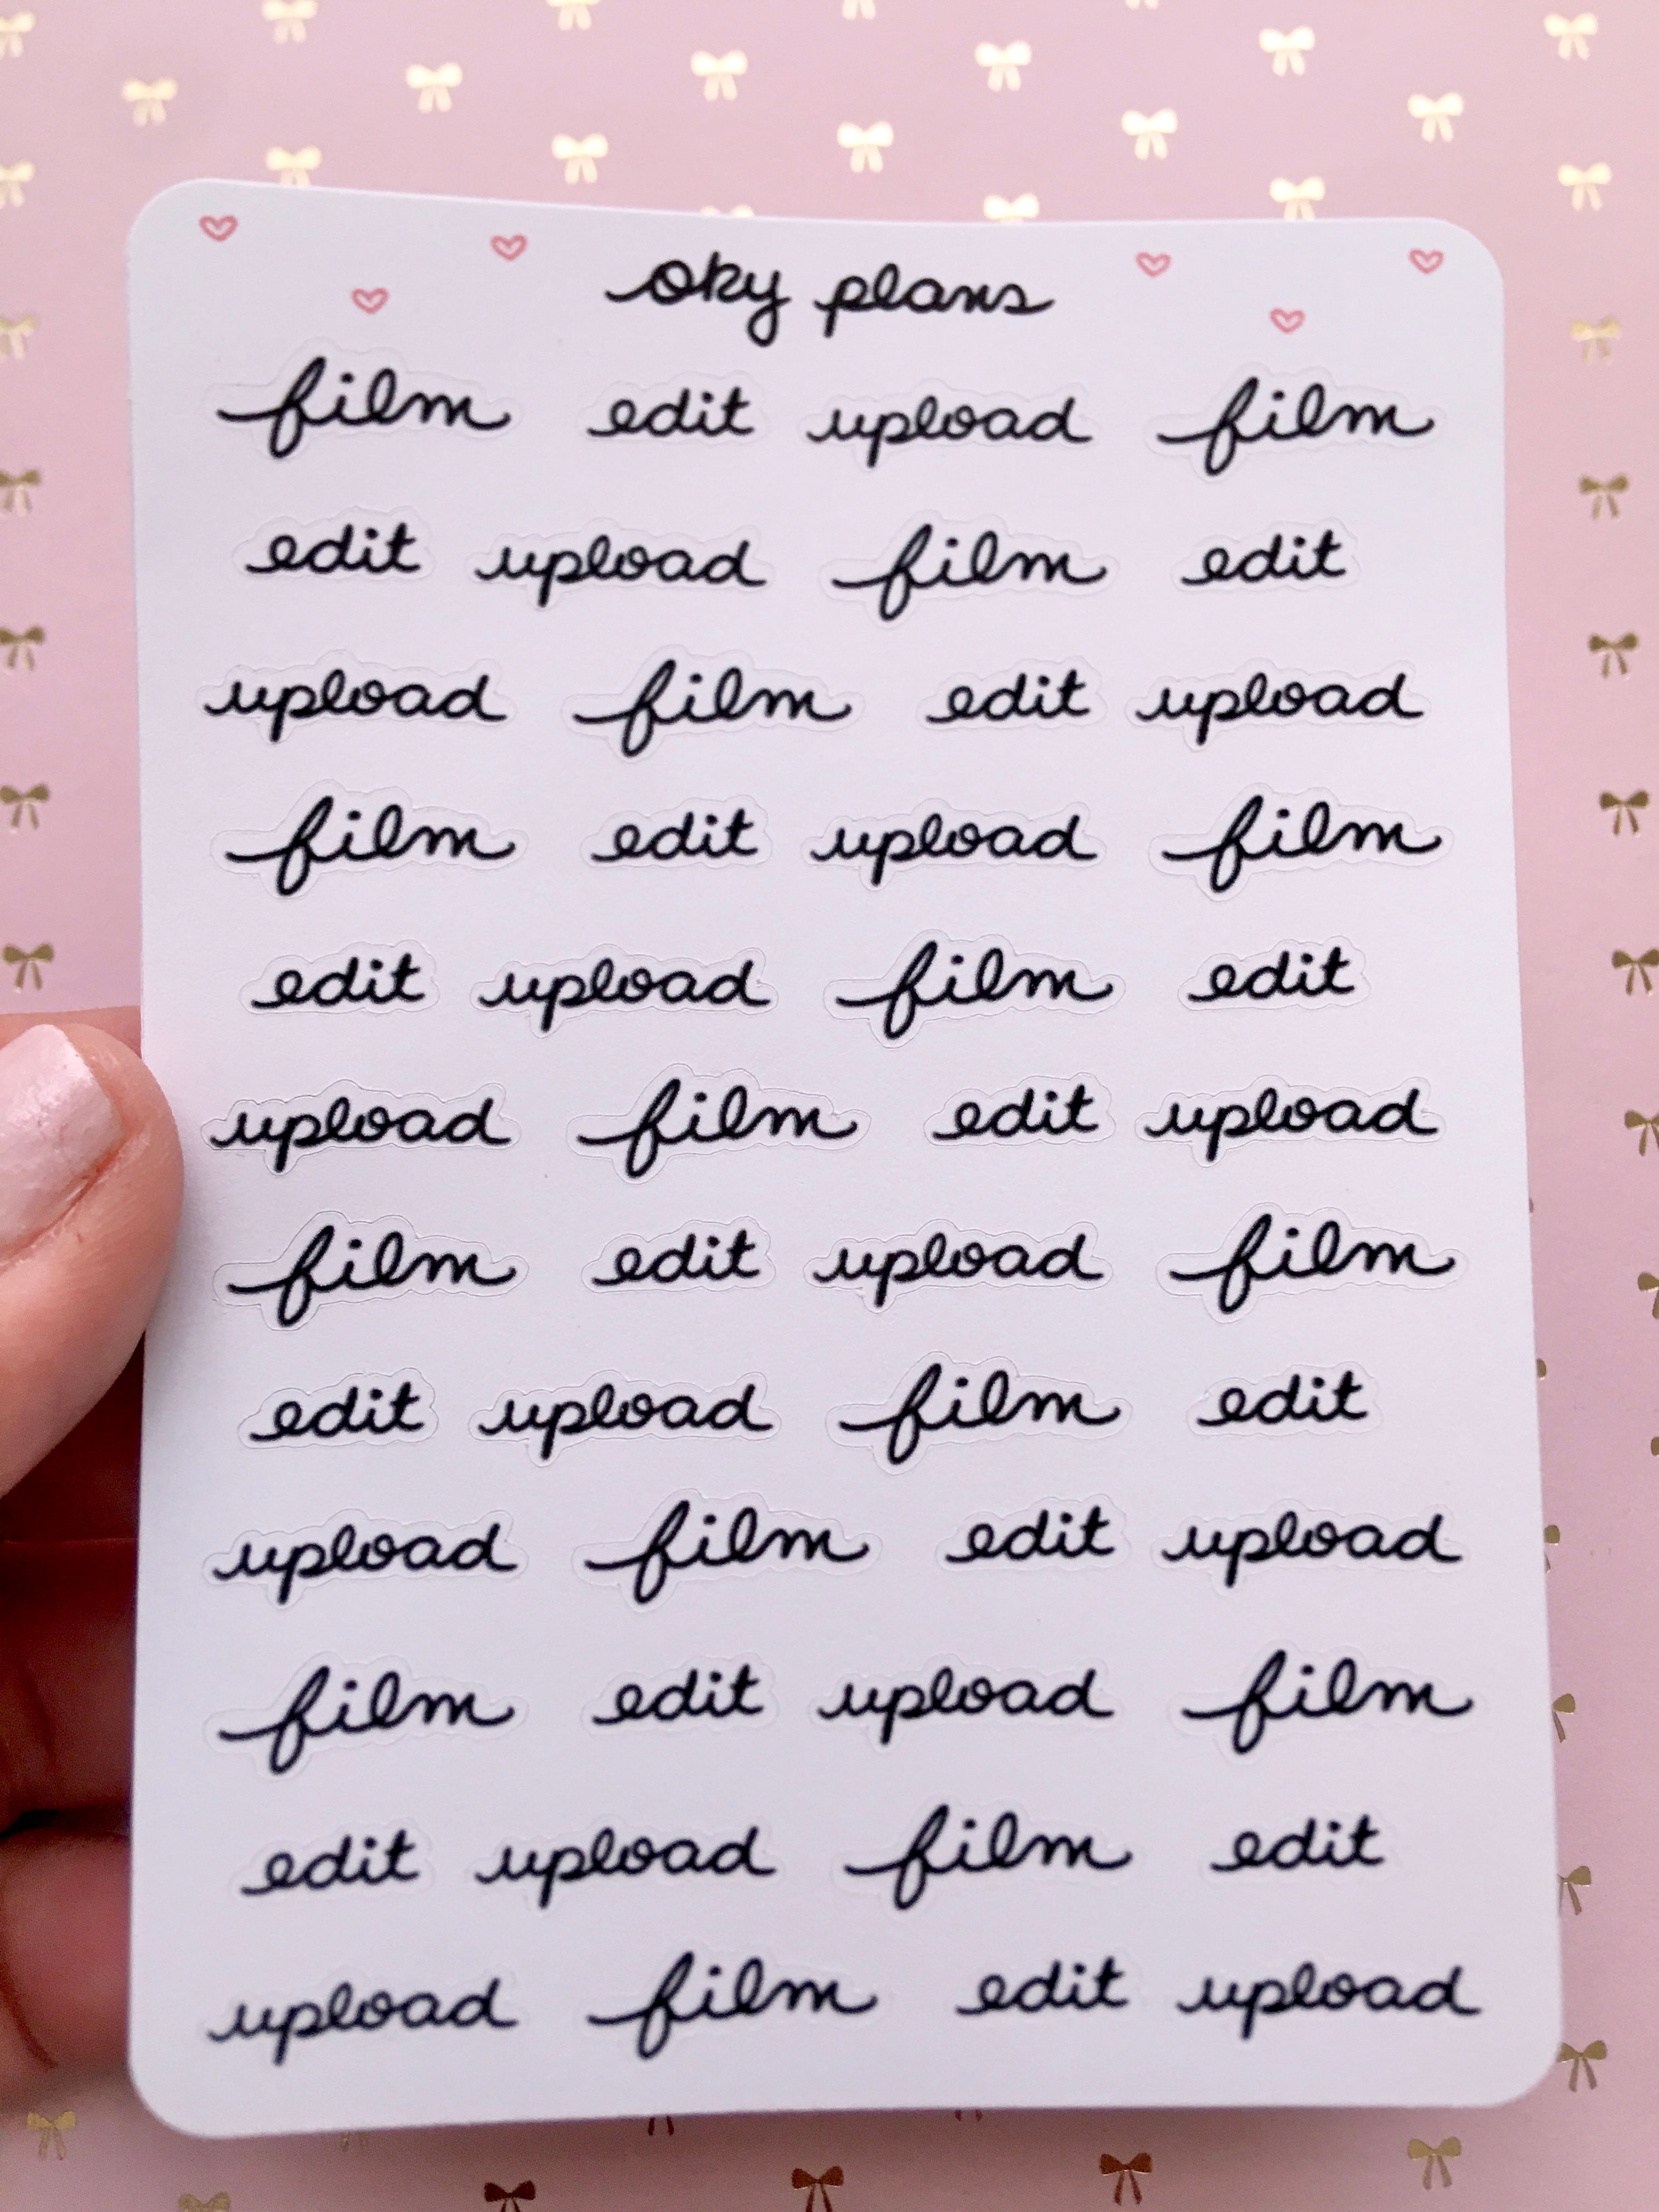 oky plans
film edit upload film
edit upload film edit
upload film edit upload
film edit upload film
edit upload film edit
upload film edit upload
film edit upload film
edit upload film edit
upload film edit upload
film edit upload film
edit upload film edit
upload film edit upload